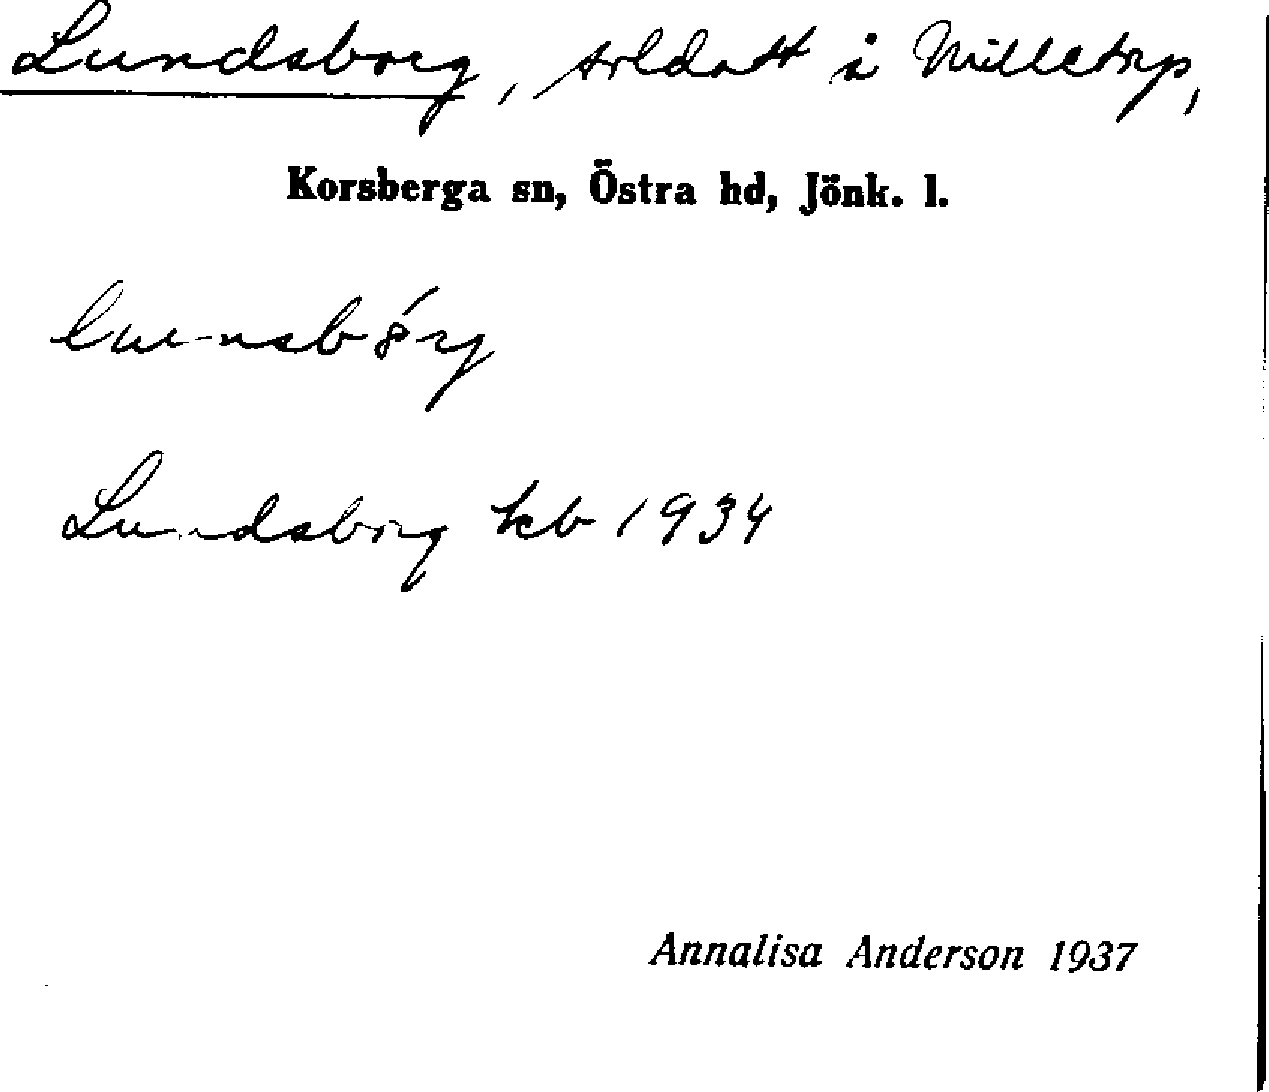 Lundsborg, soldatt i Milletorp,
Korsberga sn, Östra hd, Jönk. l.
Lundsborg kb 1934
Annalisa Anderson 1937